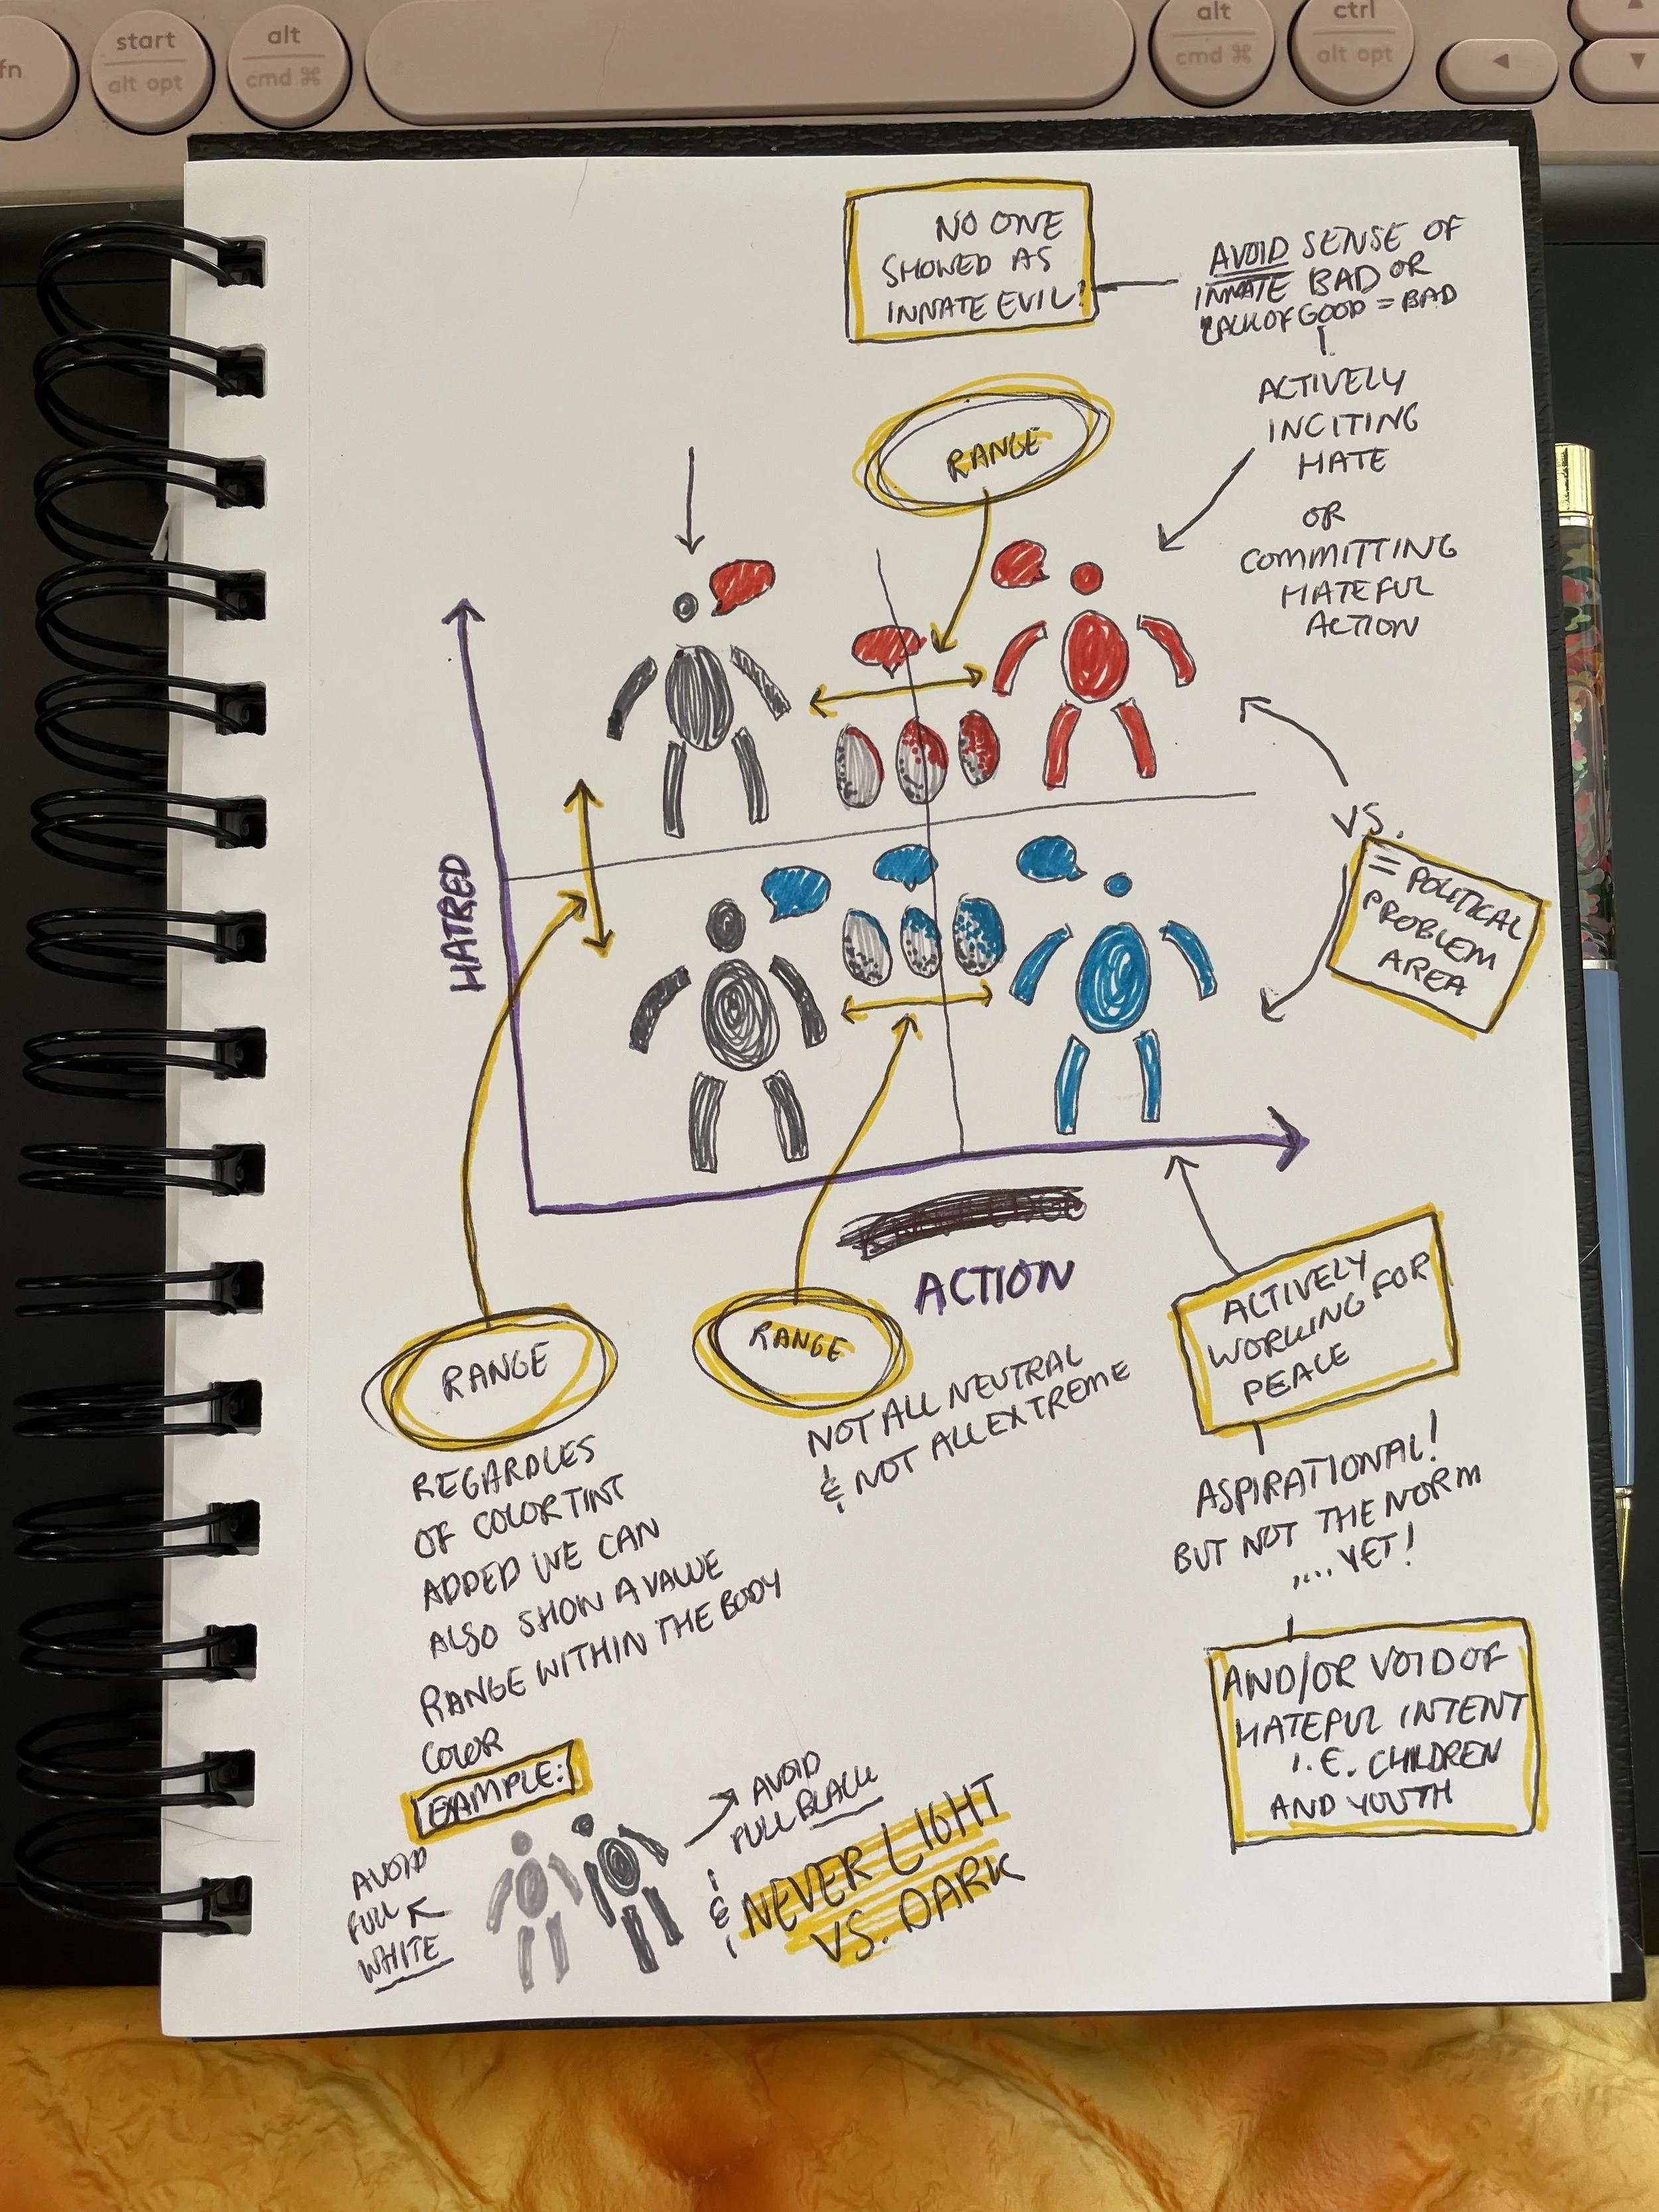 fn
start
alt opt
alt
cmd ⌘
alt
cmd ⌘
ctrl
alt opt
NO ONE
SHOWED AS
INNATE EVIL!
AVOID SENSE OF
INNATE BAD OR
LACK OF GOOD = BAD
ACTIVELY
INCITING
HATE
OR
COMMITTING
HATEFUL
ACTION
RANGE
VS.
= POLITICAL
PROBLEM
AREA
HATRED
ACTION
RANGE
REGARDLES
OF COLOR TINT
ADDED WE CAN
ALSO SHOW A VALUE
RANGE WITHIN THE BODY
COLOR
RANGE
NOT ALL NEUTRAL
& NOT ALL EXTREME
ACTIVELY
WORKING FOR
PEACE
ASPIRATIONAL!
BUT NOT THE NORM
.... YET!
AND/OR VOID OF
HATEFUL INTENT
I.E. CHILDREN
AND YOUTH
EXAMPLE:
AVOID
FULL
WHITE
AVOID
FULL BLACK
&
NEVER LIGHT
VS. DARK